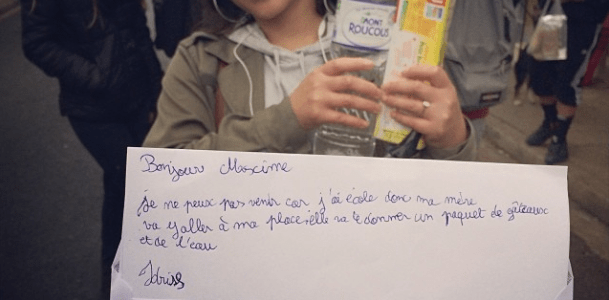 MONT
ROUCOUS
Bonjour Maxime
je ne peux pas venir car j'ai école donc ma mère
va y aller à ma place elle va te donner un paquet de gâteaux
et de l'eau
Idriss